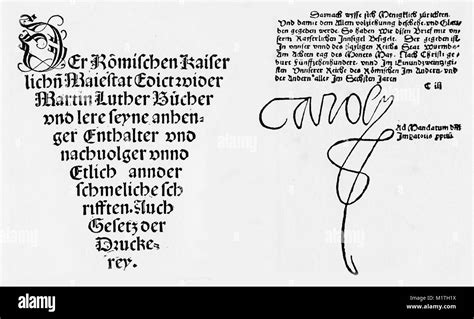 Der Römischen Kaiser
lichñ Maiestat Edict wider
Martin Luther Bücher
vnd lere seyne anhen-
ger Enthalter vnd
nachuolger vnnd
Etlich annder
schmeliche sch
rifften. Auch
Gesetz der
Drucke-
rey.
Darnach wisse sich Menigklich zurichten.
Vnd damit dem Allem volziehung beschehe vnd Glau
ben gegeben werde So haben wir disen Brief mit vn
serm Kaiserlichen Innsigel Besigelt. Der gegeben ist
In vnnser vnnd des Heyligen Reichs Stat Wurmbs
Am Achten tag des Monets May. Nach Christi ge
burt Fünffzehenhundert. vnnd im Einundzwenzigisten
Vnnserer Reiche des Römischen Im Andern. vnd
des Andern aller Im Sechsten Jaren
C iij
Carol
Ad Mandatum
alamy
Image ID: M17H1X
www.alamy.com